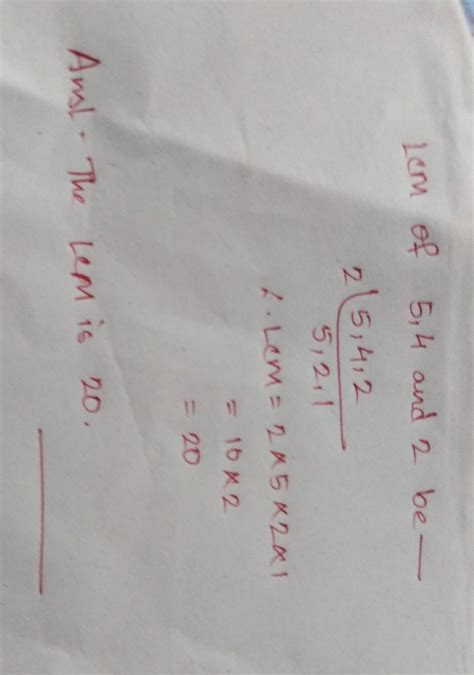 LCM of 5,4 and 2 be —
2 | 5, 4, 2
5, 2, 1
∴ LCM = 2 x 5 x 2 x 1
= 10 x 2
= 20
Ans! . The LCM is 20.